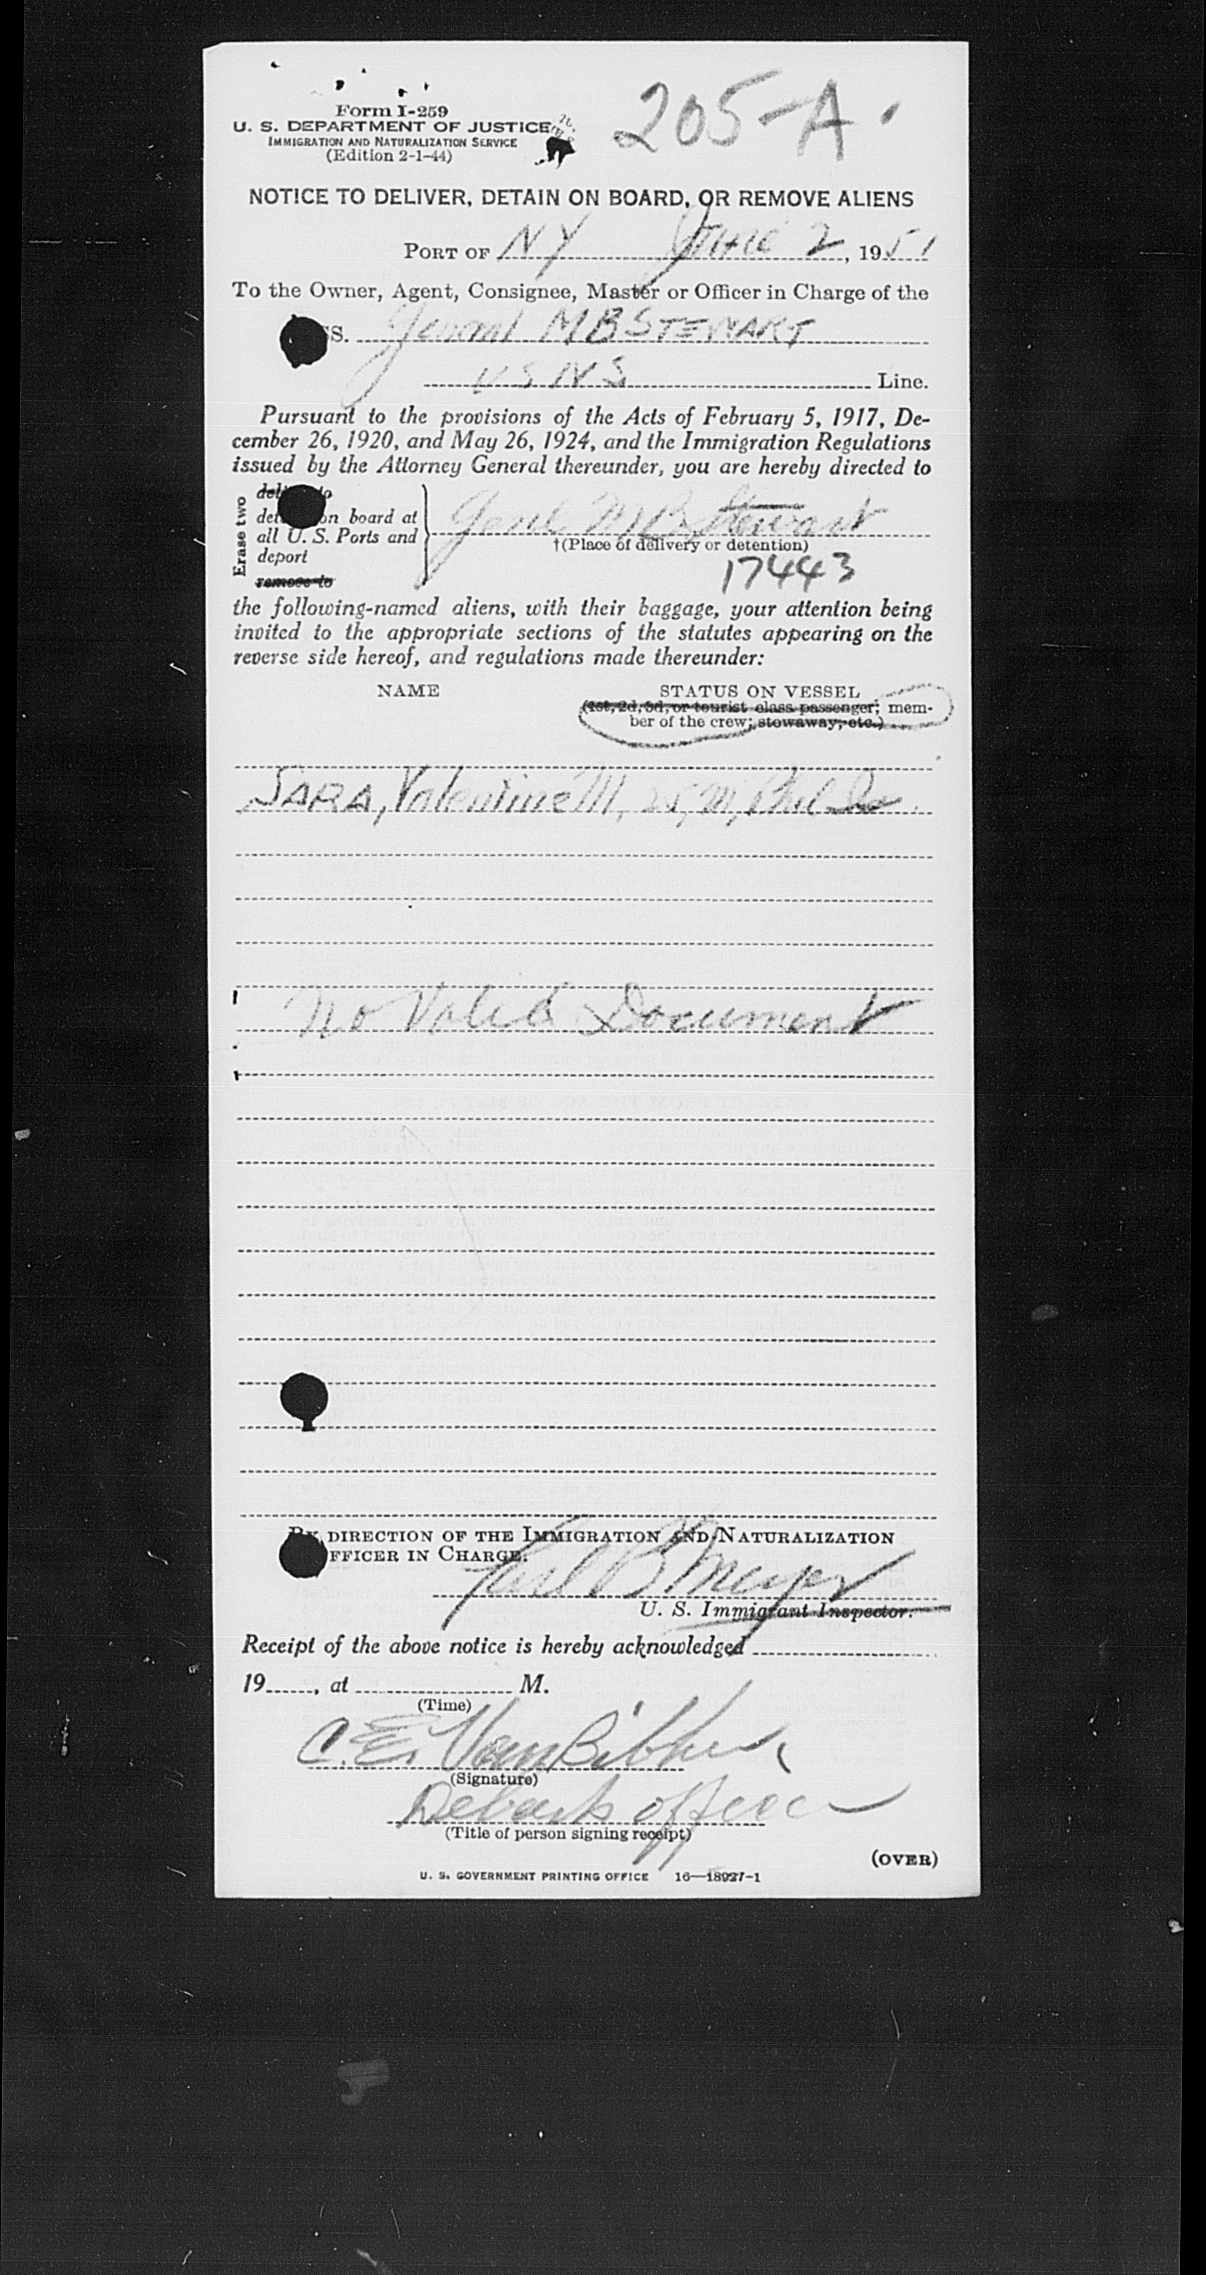 Form I-259
205-A.
U. S. DEPARTMENT OF JUSTICE
IMMIGRATION AND NATURALIZATION SERVICE
(Edition 2-1-44)
NOTICE TO DELIVER, DETAIN ON BOARD, OR REMOVE ALIENS
PORT OF NY June 2, 1951
To the Owner, Agent, Consignee, Master or Officer in Charge of the
SS. General M B STEWART
USNS Line.
Pursuant to the provisions of the Acts of February 5, 1917, De-
cember 26, 1920, and May 26, 1924, and the Immigration Regulations
issued by the Attorney General thereunder, you are hereby directed to
Erase two
deliver to
detain on board at
all U. S. Ports and
deport
remove to
Genl M B Stewart
†(Place of delivery or detention)
17443
the following-named aliens, with their baggage, your attention being
invited to the appropriate sections of the statutes appearing on the
reverse side hereof, and regulations made thereunder:
NAME STATUS ON VESSEL
(1st, 2d, 3d, or tourist class passenger; mem-
ber of the crew; stowaway, etc.)
SARA, Valentine M, 25, M, Phil Is.
No Valid Document
BY DIRECTION OF THE IMMIGRATION AND NATURALIZATION
OFFICER IN CHARGE.
Karl B Meyer
U. S. Immigrant Inspector.
Receipt of the above notice is hereby acknowledged
19 , at M.
(Time)
C. E. VanBibber
(Signature)
Debark officer
(Title of person signing receipt)
(OVER)
U. S. GOVERNMENT PRINTING OFFICE 16—18927-1